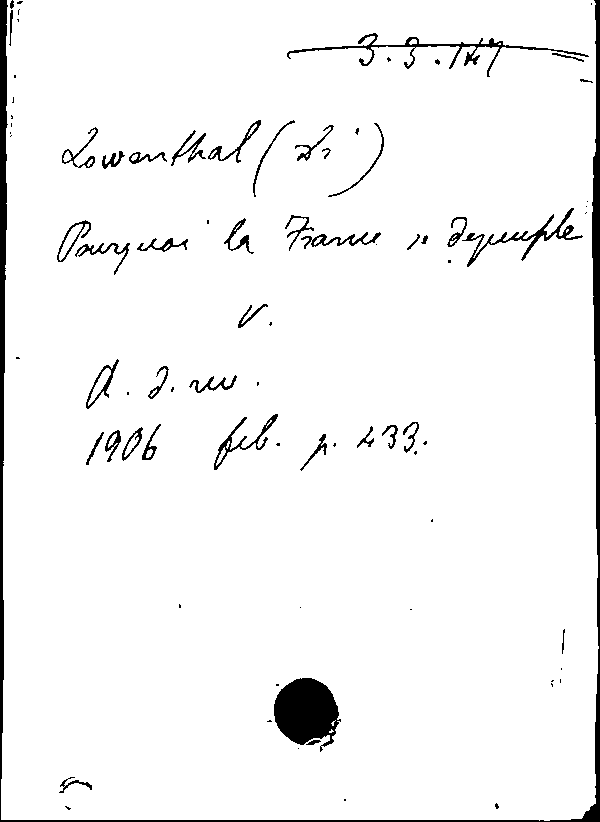 3.3.147
Lowenthal (Dr.)
Pourquoi la France se depeuple
v.
d. rev.
1906 feb. p. 433.